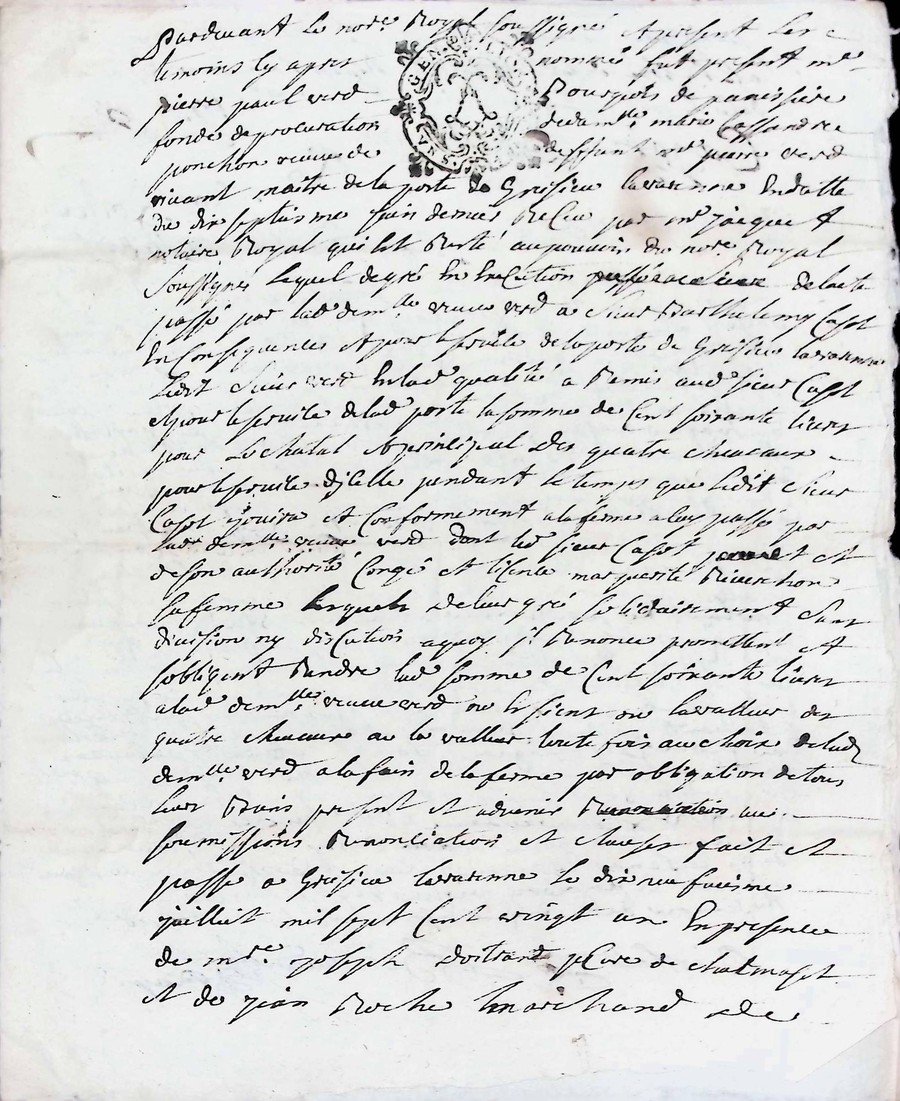 Pardevant le nore Royal soussigné et present les
temoins cy apres nommés fut present mre
pierre paul verd Bourgois de panissiere
fondé de procuration de dam.lle marie Cassandre
ponchon veuve de deffunt mre pierre verd
vivant maitre de la porte de Grisieu lavarenne En datte
du dix septiesme juin dernier Receu par me jacquet
notaire Royal qui Est Resté au pouvoir du nore Royal
soussigné lequel de gré En Execution de lacte
passé par lad demlle veuve verd a sieur Barthelemy Casot
En Consequence et pour le service de la porte de Grisieu lavarenne
Ledit sieur verd En lad qualité a Remis aud sieur Casot
Et pour le service de lad porte la somme de Cent soixante livres
pour Le chatal et principal Des quatre chevaux
pour le service d'jcelle pendant le temps que ledit sieur
Casot jouira et Conformement a la ferme a luy passé par
lad demlle veuve verd dont led sieur Casot et
de son authorité Congé et licence marguerite Riverchon
sa femme lesquels de leur gré solidairement sans
division ny discution a quoy jl Renonce promettent et
sobligent Randre lad somme de Cent soixante livres
a lad demlle veuve verd ou Es siens ou la valleur des
quatre chevaux ou la valleur toute fois au choix de lad
demlle verd a la fain de la ferme par obligation de tous
leur Biens present et advenir Renonciation
soumissions Renonciation et clauses fait et
passé a Grisieu lavarenne le dix neufviesme
juilliet mil sept Cent vingt un En presence
de mre joseph de
et de jean Roche marchand de